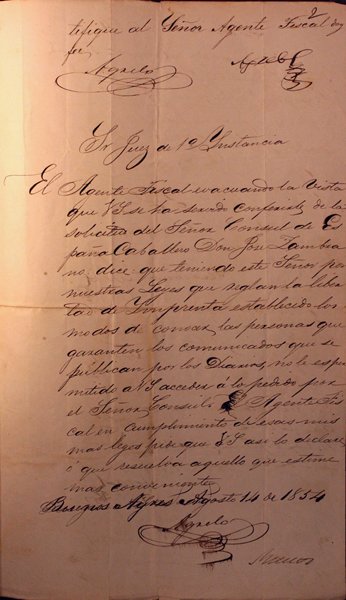 tifique al Señor Agente Fiscal doy
fe
Agrelo
Sr Juez de 1a Instancia
El Agente Fiscal evacuando la Vista
que VS se ha servido conferirle de la
solicitud del Señor Consul de Es
paña Caballero Don José Zambra
no dice: que teniendo este Señor por
nuestras Leyes que reglan la liber
tad de Ymprenta establecido los
modos de conocer las personas que
garanten los comunicados que se
publican por los Diarios, no le es per
mitido a VS acceder á lo pedido por
el Señor Consul. El Agente Fis
cal en cumplimiento de esas mis
mas leyes pide que VS asi lo declare
o que resuelva aquello que estime
mas conveniente
Buenos Ayres Agosto 14 de 1854
Agrelo